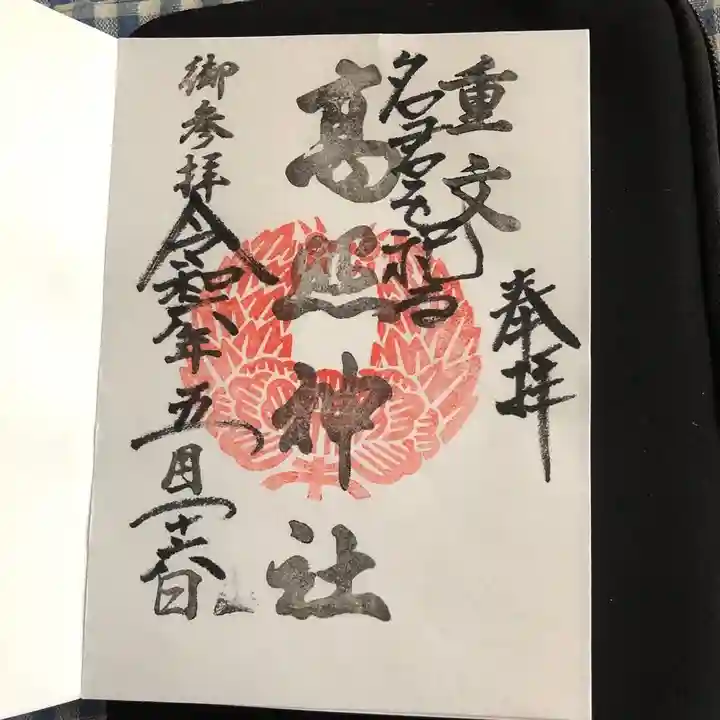 奉拝
重文
名君を祀る
高照神社
御参拝
令和年五月十六日